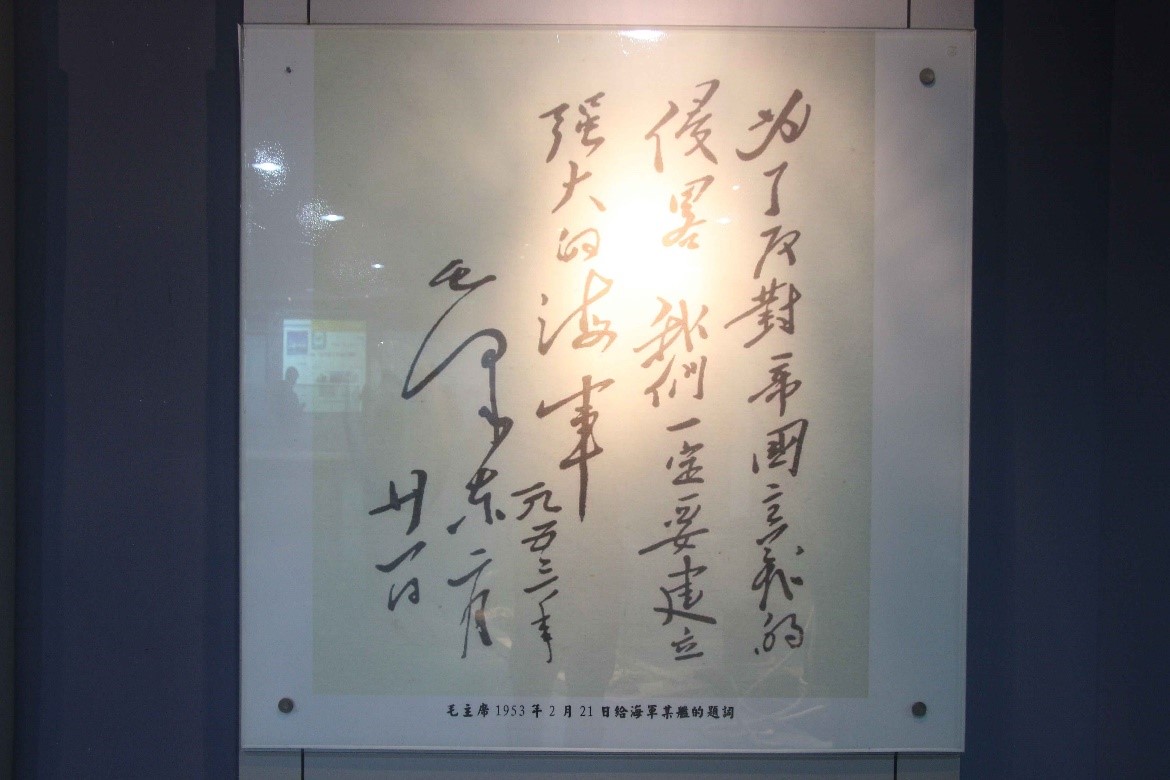 为了反對帝國主義的
侵畧 我們一定要建立
强大的海軍
毛泽东
一九五三年
二月
廿一日
毛主席1953年2月21日給海軍某艦的題詞